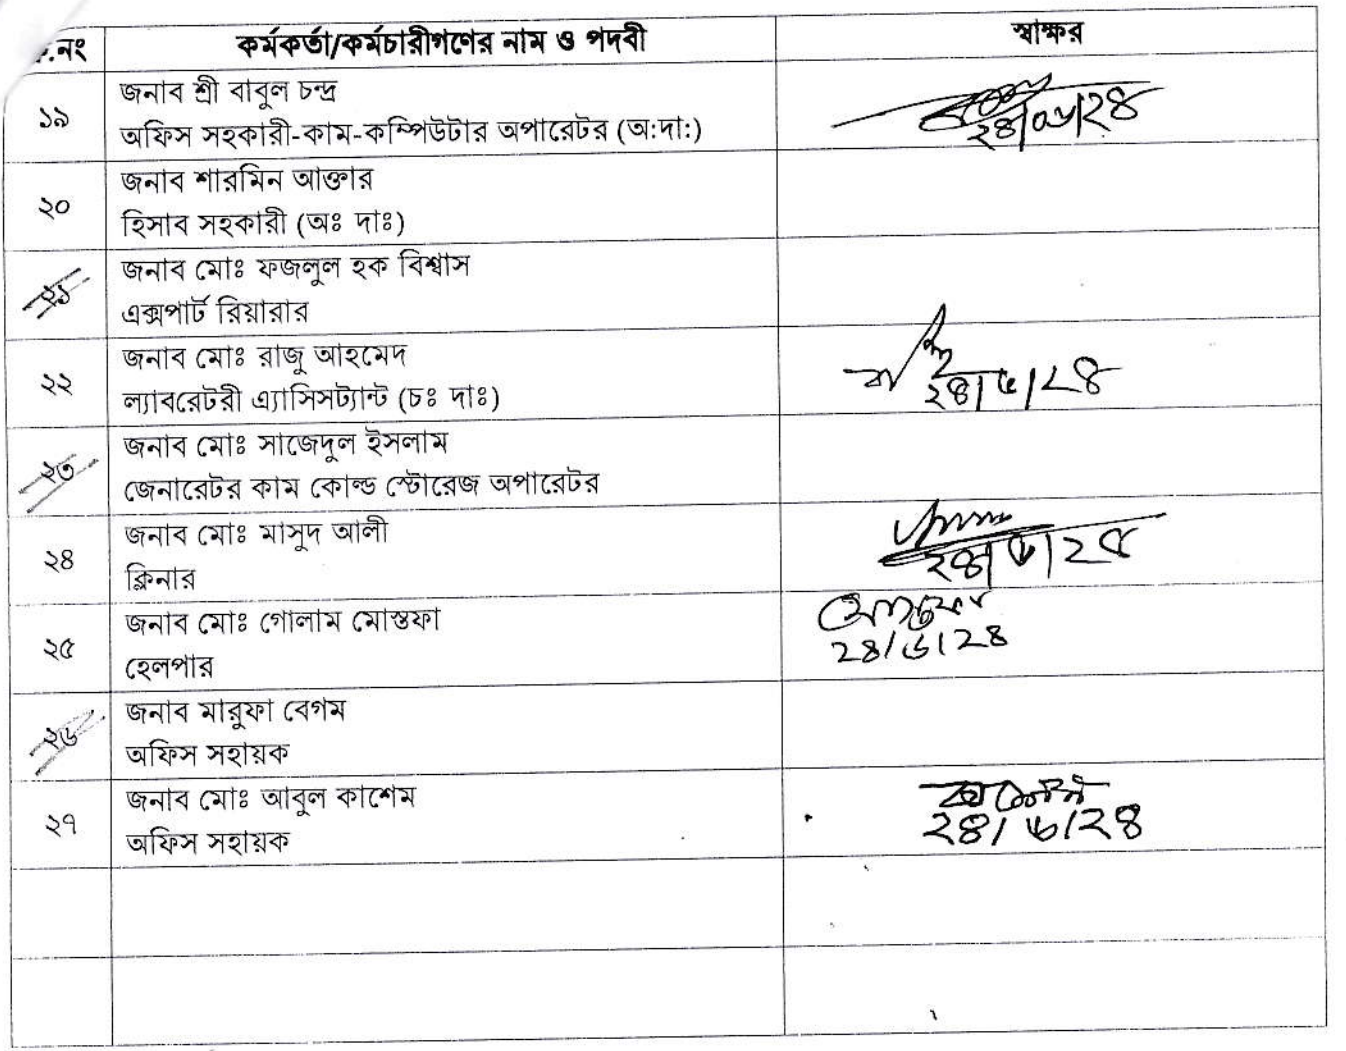 ক্র.নং কর্মকর্তা/কর্মচারীগণের নাম ও পদবী স্বাক্ষর
১৯ জনাব শ্রী বাবুল চন্দ্র
অফিস সহকারী-কাম-কম্পিউটার অপারেটর (অ:দা:)
২৪/০৬/২৪
২০ জনাব শারমিন আক্তার
হিসাব সহকারী (অঃ দাঃ)
২১ জনাব মোঃ ফজলুল হক বিশ্বাস
এক্সপার্ট রিয়ারার
২২ জনাব মোঃ রাজু আহমেদ
ল্যাবরেটরী এ্যাসিসট্যান্ট (চঃ দাঃ)
২৪/৬/২৪
২৩ জনাব মোঃ সাজেদুল ইসলাম
জেনারেটর কাম কোল্ড স্টোরেজ অপারেটর
২৪ জনাব মোঃ মাসুদ আলী
ক্লিনার
২৫ জনাব মোঃ গোলাম মোস্তফা
হেলপার
২৪/৬/২৪
২৬ জনাব মারুফা বেগম
অফিস সহায়ক
২৭ জনাব মোঃ আবুল কাশেম
অফিস সহায়ক
২৪/৬/২৪